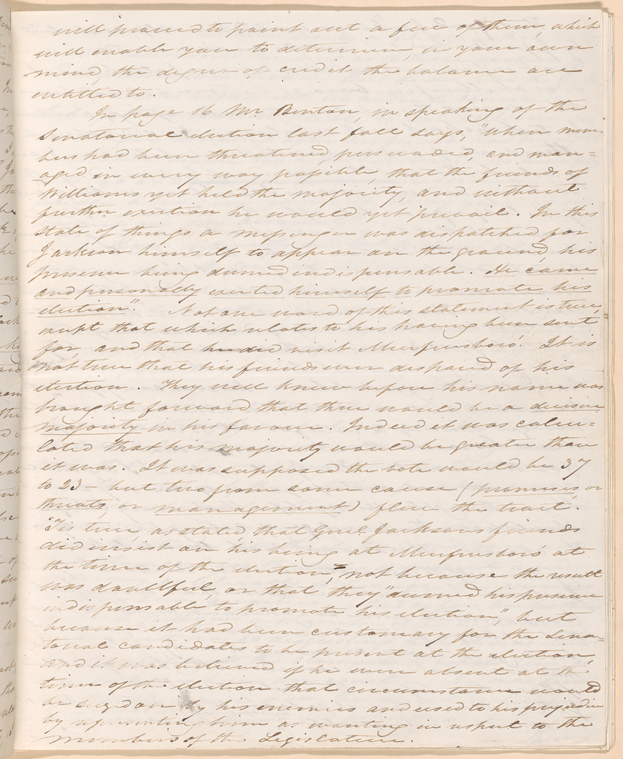 will proceed to point out a few of them, which
will enable you to determine, in your own
mind, the degree of credit the balance are
entitled to.
In page 16 Mr Benton, in speaking of the
Senatorial election last fall says, "when mem-
bers had been threatened, persuaded, and man=
aged in every way possible that the friends of
Williams yet held the majority, and without
further exertion he would yet prevail. In this
state of things a messenger was dispatched for
Jackson himself to appear on the ground, his
presence being deemed indispensable. He came
and personally exerted himself to promote his
election". Not one word of this statement is true,
except that which relates to his having been sent
for, and that he did visit Murfresboro'. It is
not true that his friends ever dispaired of his
election. They well knew before his name was
brought forward that there would be a decisive
majority in his favour. Indeed it was calcu=
lated that his majority would be greater than
it was. It was supposed the vote would be 37
to 23 - but two from some cause (promises or
threats, or management) flew the tract.
'Tis true, as stated, that Genl Jacksons friends
did insist on his being at Murfresboro' at
the time of the election, not because the result
was doubtful, or that they "deemed his presence
indispensable to promote his election," but
because it had been customary for the Sena=
torial candidates to be present at the election,
and it was believed if he were absent at the
time of the election that circumstance would
be seized on by his enemies and used to his prejudice
by representing him as wanting in respect to the
members of the Legislature.